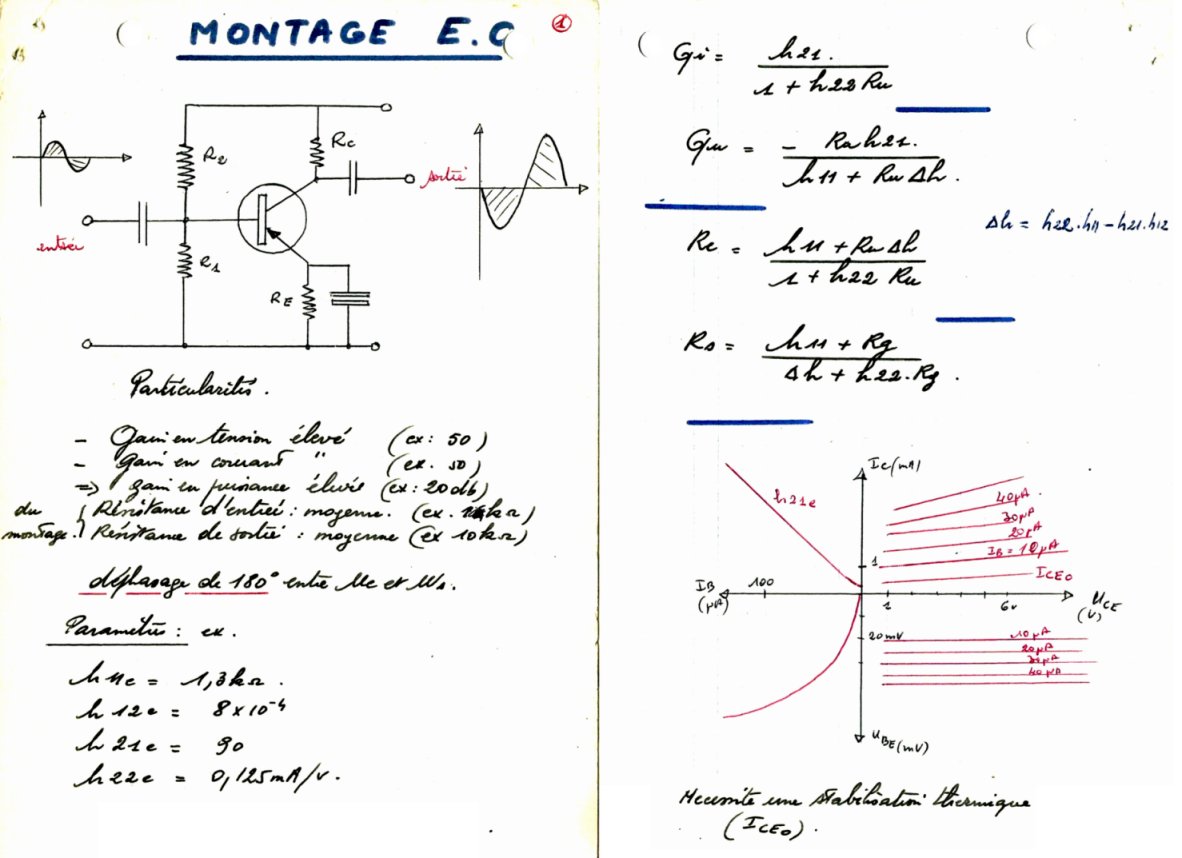 MONTAGE E.C
1
R2
Rc
sortie
entrée
R1
RE
Particularités.
- Gain en tension élevé (ex: 50)
- Gain en courant " (ex. 50)
=> gain en puissance élevée (ex: 20db)
du montage. { Résistance d'entrée : moyenne. (ex. 1kΩ)
Résistance de sortie : moyenne (ex 10kΩ)
déphasage de 180° entre Ue et Us.
Paramètres : ex.
h11e = 1,3kΩ.
h12e = 8x10⁻⁴
h21e = 90
h22e = 0,125mA/V.
Gi = h21. / 1 + h22 Ru
Gu = - Ru h21. / h11 + Ru Δh.
Δh = h22.h11 - h21.h12
Re = h11 + Ru Δh / 1 + h22 Ru
Rs = h11 + Rg / Δh + h22.Rg.
Ic (mA)
h21e
40µA.
30µA
20µA
IB = 10µA
ICEO
1
IB (µA)
100
1
6v
UCE (V)
20mV
10µA
20µA
30µA
40µA
UBE (mV)
Necessite une stabilisation thermique
(ICEO).